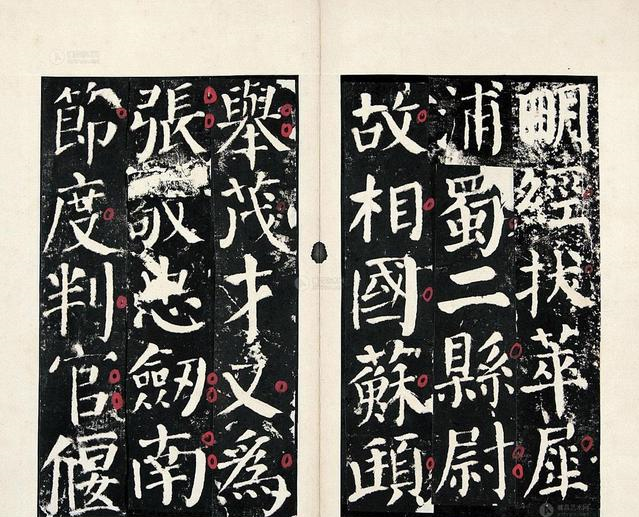 明經拔萃犀
浦蜀二縣尉
故相國蘇頲
舉茂才又為
張敬忠劒南
節度判官偃